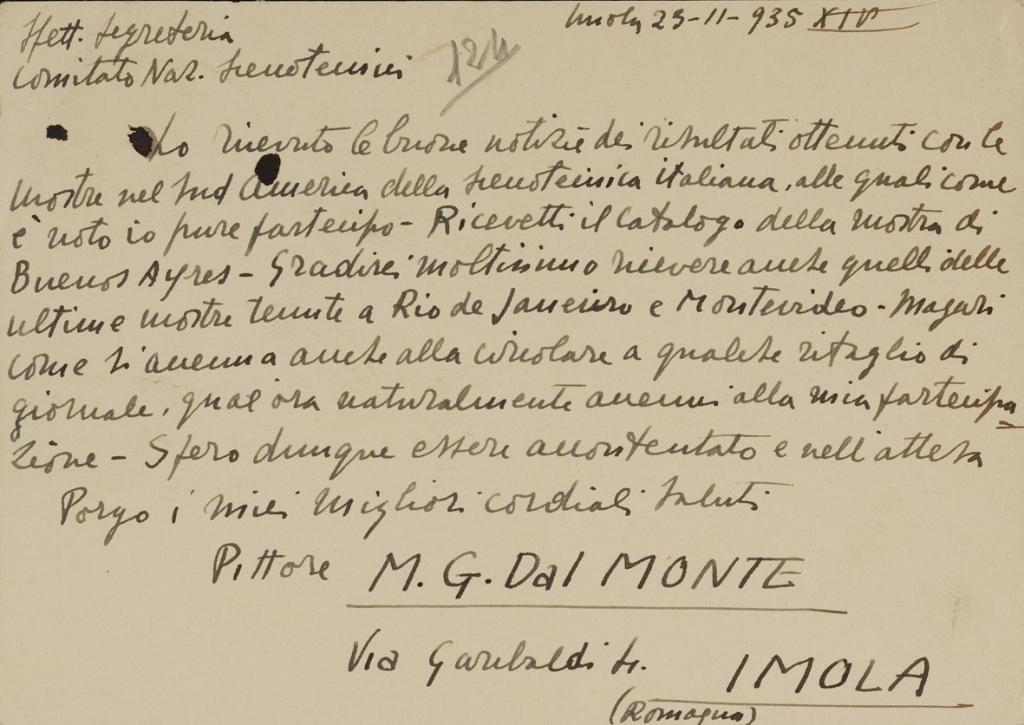 Imola 23-11-935 XIV
Spett. Segreteria
Comitato Naz. Scenotecnici
124
Ho ricevuto le buone notizie dei risultati ottenuti con le
mostre nel Sud America della scenotecnica italiana, alle quali come
è noto io pure partecipo - Ricevetti il catalogo della mostra di
Buenos Ayres - Gradirei moltissimo ricevere anche quelli delle
ultime mostre tenute a Rio de Janeiro e Montevideo - Magari
come si accenna anche alla circolare a qualche ritaglio di
giornale, qual ora naturalmente accenni alla mia partecipa
zione - Spero dunque essere accontentato e nell'attesa
Porgo i miei migliori cordiali saluti
Pittore M. G. Dal MONTE
Via Garibaldi IMOLA
(Romagna)